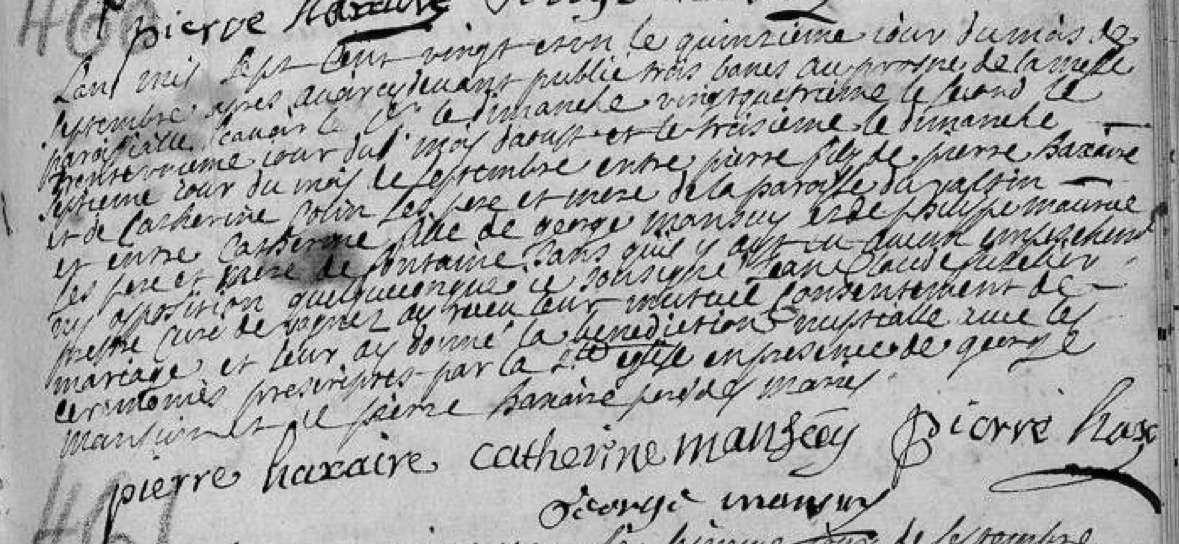 460
pierre haxaire George
Lan mil sept cent vingt et un le quinzieme iour du mois de
septembre apres avoir cydevant publié trois bancs au prosne de la messe
paroissialle scavoir le 1er le dimanche vingtquatrieme le second le
trente uniéme iour dud mois daoust et le troisieme le dimanche
septieme iour du mois de septembre entre pierre fils de pierre haxaire
et de Catherine Colin ses pere et mere de la paroisse du valtin
et entre Catherine fille de george mansuy et de philippe maurice
ses pere et mere de fontaine sans quil y ayt eu aucun empeschem
ny oposition quelqueconque ie soussigné Jean Claude
prestre curé de ay receu leur mutuel consentement de
mariage et leur ay donné la benediction nuptialle avec les
ceremonies prescriptes par la Ste eglise en presence de george
mansuy et de pierre haxaire peres des mariés
pierre haxaire catherine mansuy pierre hax
George mansuy
461
iour de septembre